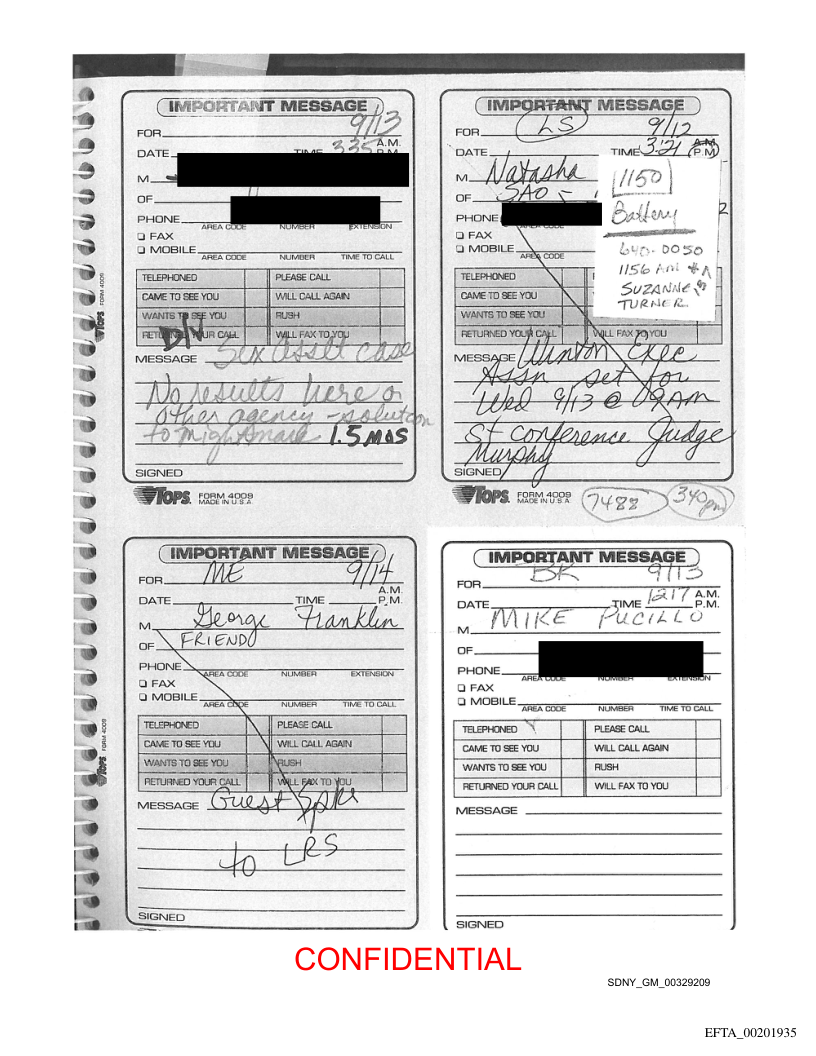 IMPORTANT MESSAGE
9/13
FOR
335 A.M.
DATE TIME P.M.
M
OF
PHONE
AREA CODE NUMBER EXTENSION
FAX
MOBILE
AREA CODE NUMBER TIME TO CALL
TELEPHONED PLEASE CALL
CAME TO SEE YOU WILL CALL AGAIN
WANTS TO SEE YOU RUSH
RETURNED YOUR CALL WILL FAX TO YOU
D/V
MESSAGE Sex Asslt case
No results here or
other agency - solution
to mightmare 1.5 mos
SIGNED
TOPS FORM 4009
MADE IN U.S.A.
TOPS FORM 4009
IMPORTANT MESSAGE
LS 9/12
FOR
DATE TIME 3:21 A.M. P.M.
M Natasha
OF SAO -
PHONE 2
AREA CODE
FAX
MOBILE
AREA CODE
1150
Battery
640-0050
1156 AM
SUZANNE
TURNER
TELEPHONED
CAME TO SEE YOU
WANTS TO SEE YOU
RETURNED YOUR CALL WILL FAX TO YOU
MESSAGE Winton Exec
Assn set for
Wed 9/13 @ 09AM
St Conference Judge
Murphy
SIGNED
TOPS FORM 4009
MADE IN U.S.A.
7488 340 pm
IMPORTANT MESSAGE
FOR ME 9/14
A.M.
DATE TIME P.M.
M George Franklin
OF FRIEND
PHONE
AREA CODE NUMBER EXTENSION
FAX
MOBILE
AREA CODE NUMBER TIME TO CALL
TELEPHONED PLEASE CALL
CAME TO SEE YOU WILL CALL AGAIN
WANTS TO SEE YOU RUSH
RETURNED YOUR CALL WILL FAX TO YOU
MESSAGE Guest Spkr
to LRS
SIGNED
TOPS FORM 4009
IMPORTANT MESSAGE
FOR BK 9/13
DATE TIME 1217 A.M.
P.M.
M MIKE PUCILLO
OF
PHONE
AREA CODE NUMBER EXTENSION
FAX
MOBILE
AREA CODE NUMBER TIME TO CALL
TELEPHONED PLEASE CALL
CAME TO SEE YOU WILL CALL AGAIN
WANTS TO SEE YOU RUSH
RETURNED YOUR CALL WILL FAX TO YOU
MESSAGE
SIGNED
CONFIDENTIAL
SDNY_GM_00329209
EFTA_00201935